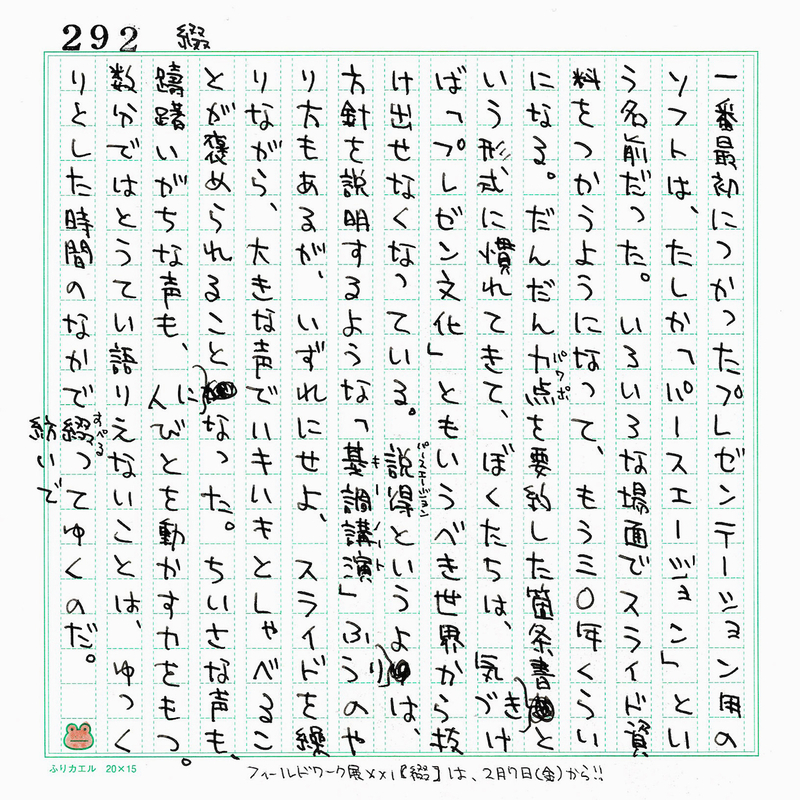 292 綴
一番最初につかったプレゼンテーション用の
ソフトは、たしか「パースエージョン」とい
う名前だった。いろいろな場面でスライド資
料をつかうようになって、もう三〇年くらい
になる。だんだん力点を要約した箇条書きと
パワポ
いう形式に慣れてきて、ぼくたちは、気づけ
ば「プレゼン文化」ともいうべき世界から抜
け出せなくなっている。説得というよりは、
パースエージョン
方針を説明するような「基調講演」ふうのや
キーノート
り方もあるが、いずれにせよ、スライドを繰
りながら、大きな声でいきいきとしゃべるこ
とが褒められることになった。ちいさな声も、
躊躇いがちな声も、人びとを動かす力をもつ。
数分ではとうてい語りえないことは、ゆっく
りとした時間のなかで綴ってゆくのだ。
すべる
紡いで
ふりカエル 20×15
フィールドワーク展xxi『綴』は、2月7日(金)から!!